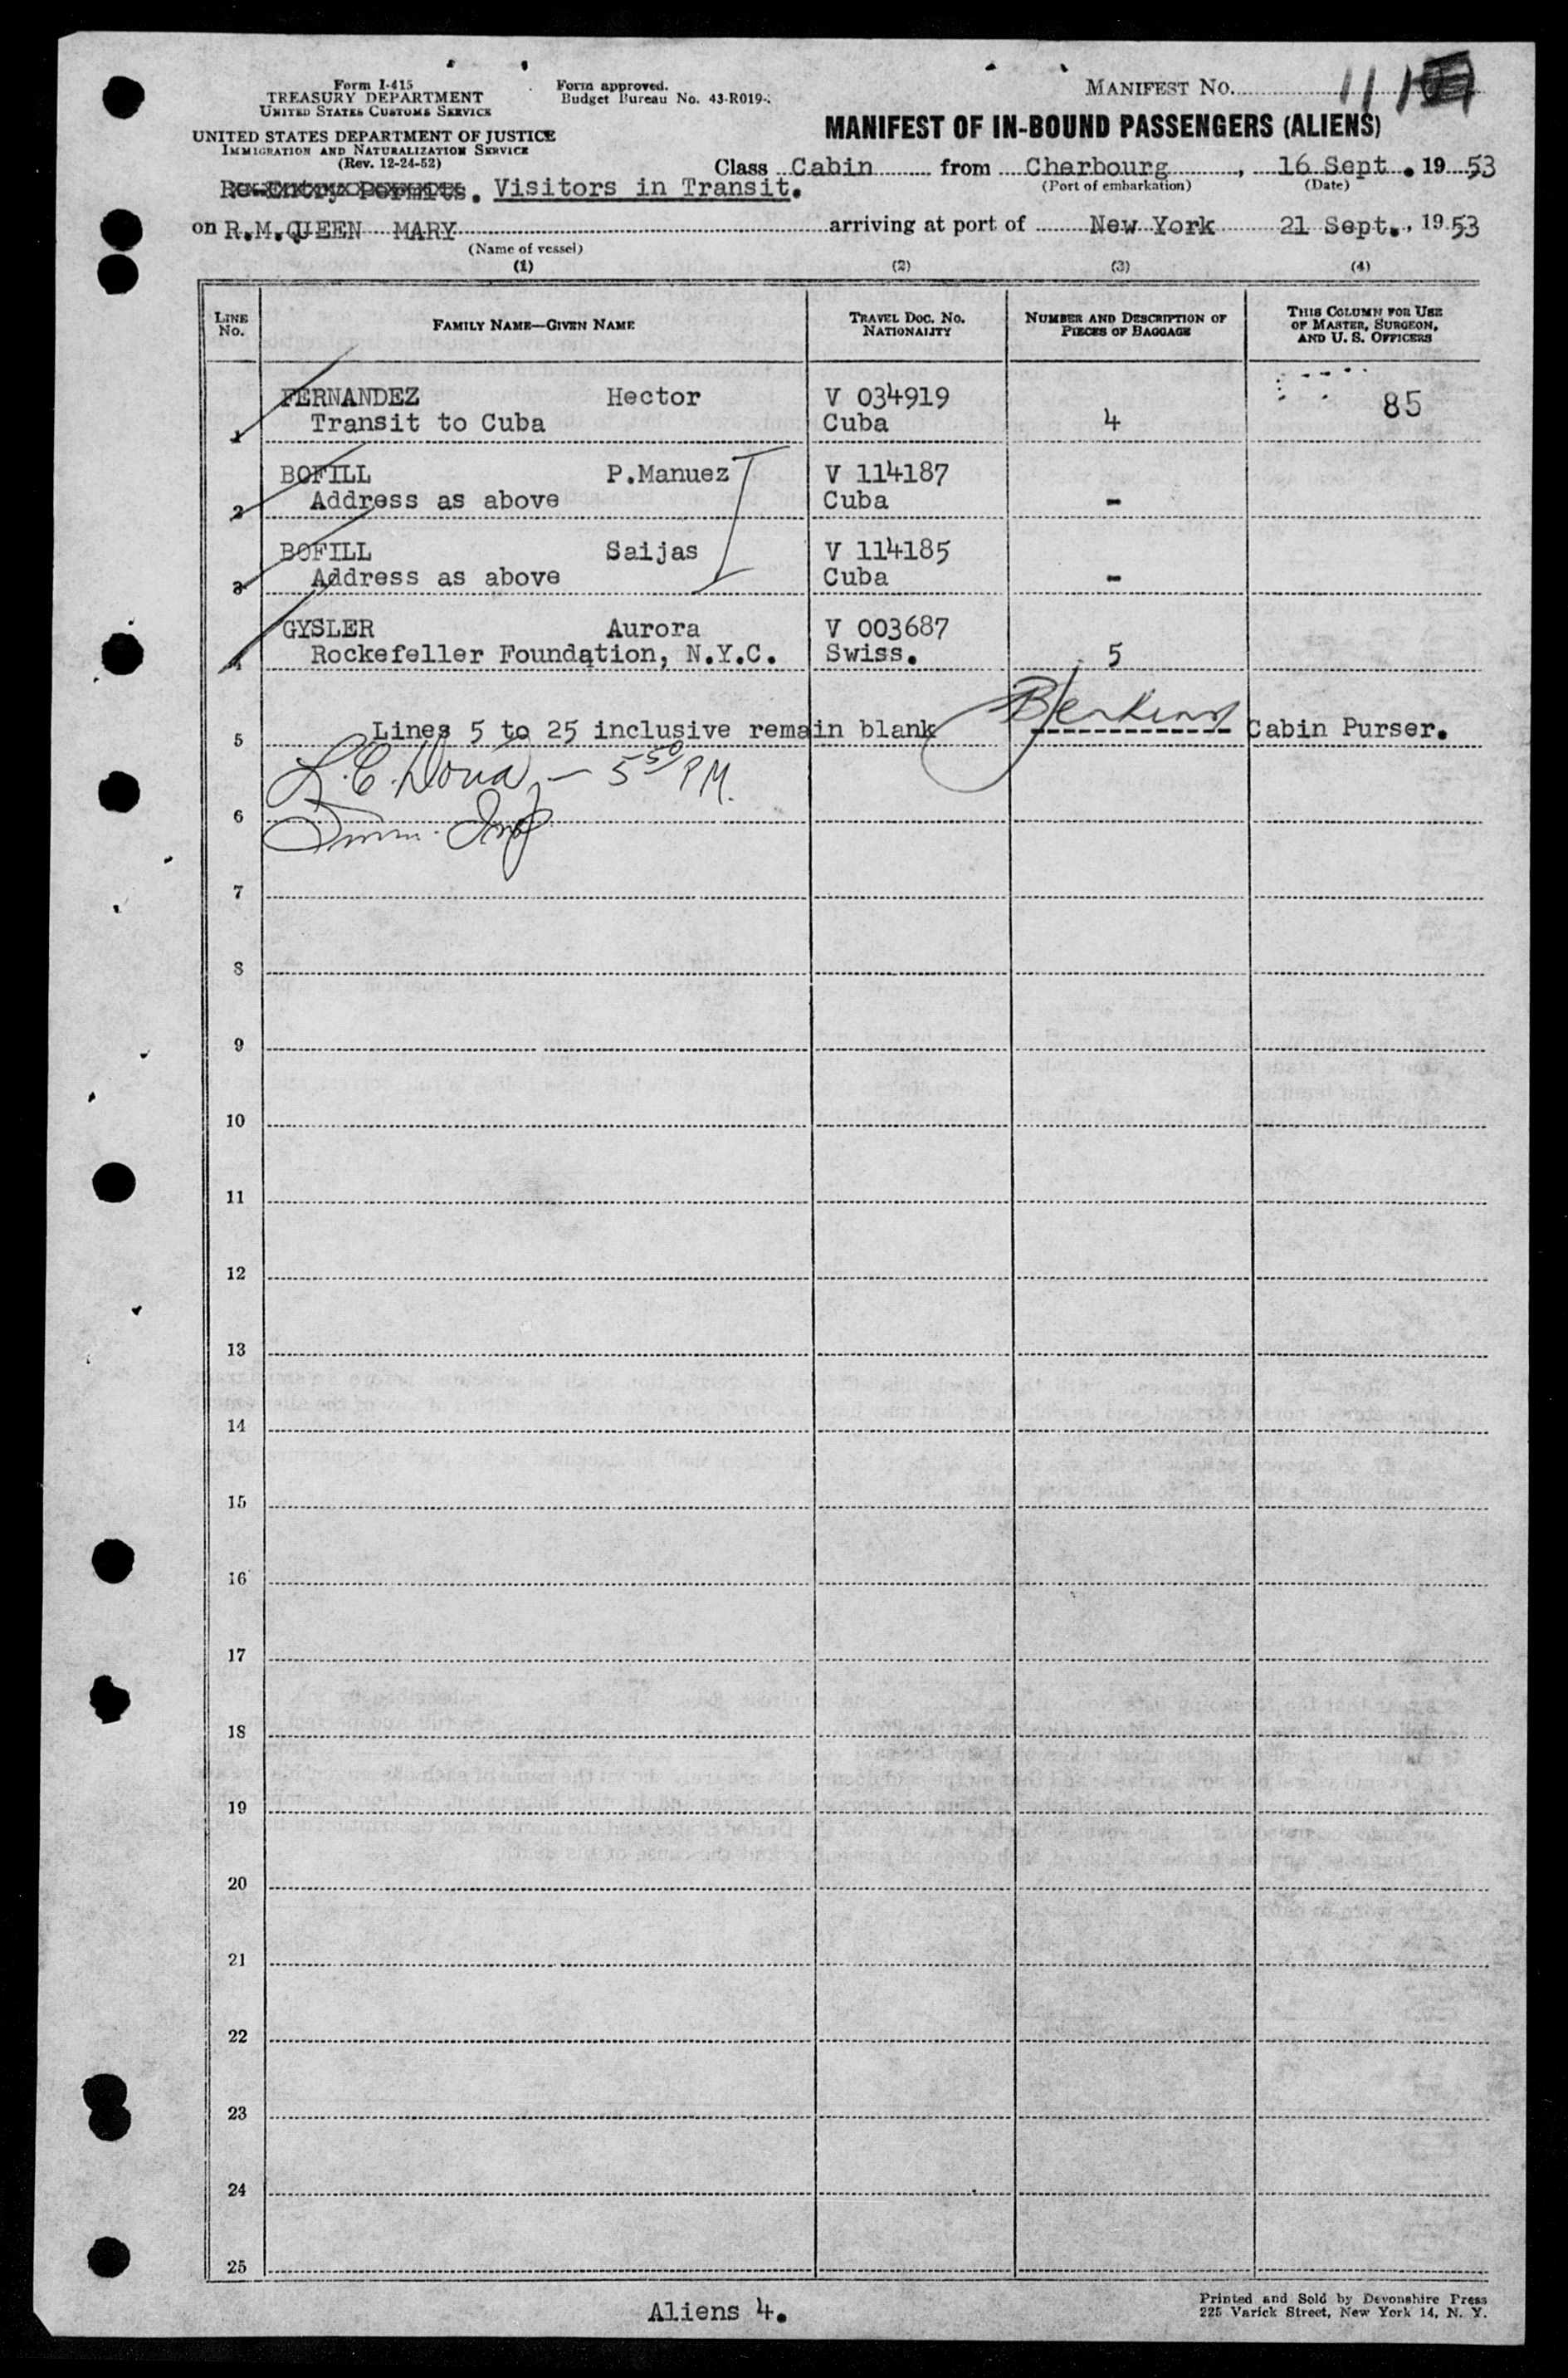 Form I-415
TREASURY DEPARTMENT
UNITED STATES CUSTOMS SERVICE
UNITED STATES DEPARTMENT OF JUSTICE
IMMIGRATION AND NATURALIZATION SERVICE
(Rev. 12-24-52)
Form approved.
Budget Bureau No. 43-R019-
MANIFEST NO. 111
MANIFEST OF IN-BOUND PASSENGERS (ALIENS)
Class Cabin from Cherbourg, 16 Sept. 1953
(Port of embarkation) (Date)
Re-Entry Permits. Visitors in Transit.
on R.M.QUEEN MARY arriving at port of New York 21 Sept., 1953
(Name of vessel)
(1) (2) (3) (4)
LINE NO. FAMILY NAME—GIVEN NAME TRAVEL DOC. NO. NATIONALITY NUMBER AND DESCRIPTION OF PIECES OF BAGGAGE THIS COLUMN FOR USE OF MASTER, SURGEON, AND U. S. OFFICERS
FERNANDEZ Hector V 034919 85
1 Transit to Cuba Cuba 4
BOFILL P.Manuez V 114187
2 Address as above Cuba -
BOFILL Saijas V 114185
3 Address as above Cuba -
GYSLER Aurora V 003687
4 Rockefeller Foundation, N.Y.C. Swiss. 5
5 Lines 5 to 25 inclusive remain blank Cabin Purser.
L.C. 5 50 PM.
6 Imm. Insp
7
8
9
10
11
12
13
14
15
16
17
18
19
20
21
22
23
24
25
Aliens 4.
Printed and Sold by Devonshire Press
225 Varick Street, New York 14, N. Y.